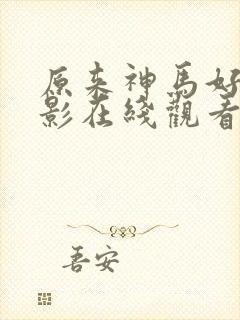 原来神馬好
影在綫觀看
吾安